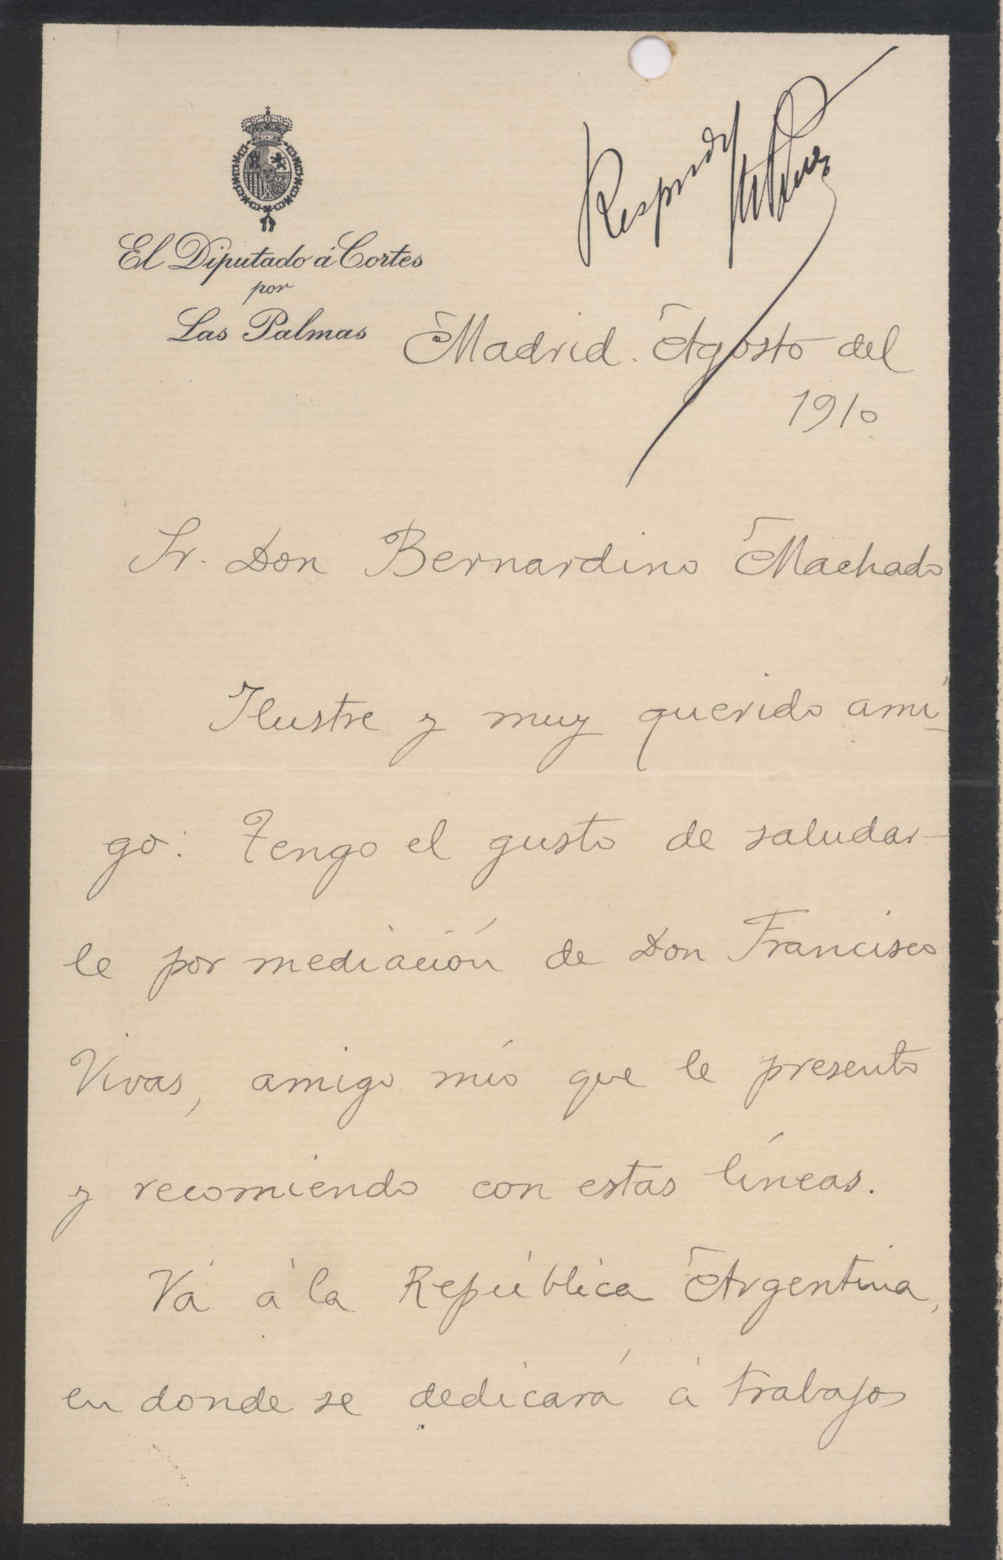 El Diputado á Cortes
por
Las Palmas
Madrid. Agosto del
1910
Sr. Don Bernardino Machado
Ilustre y muy querido ami-
go: Tengo el gusto de saludar-
le por mediación de Don Francisco
Vivas, amigo mío que le presento
y recomiendo con estas líneas.
Vá á la República Argentina,
en donde se dedicará á trabajos